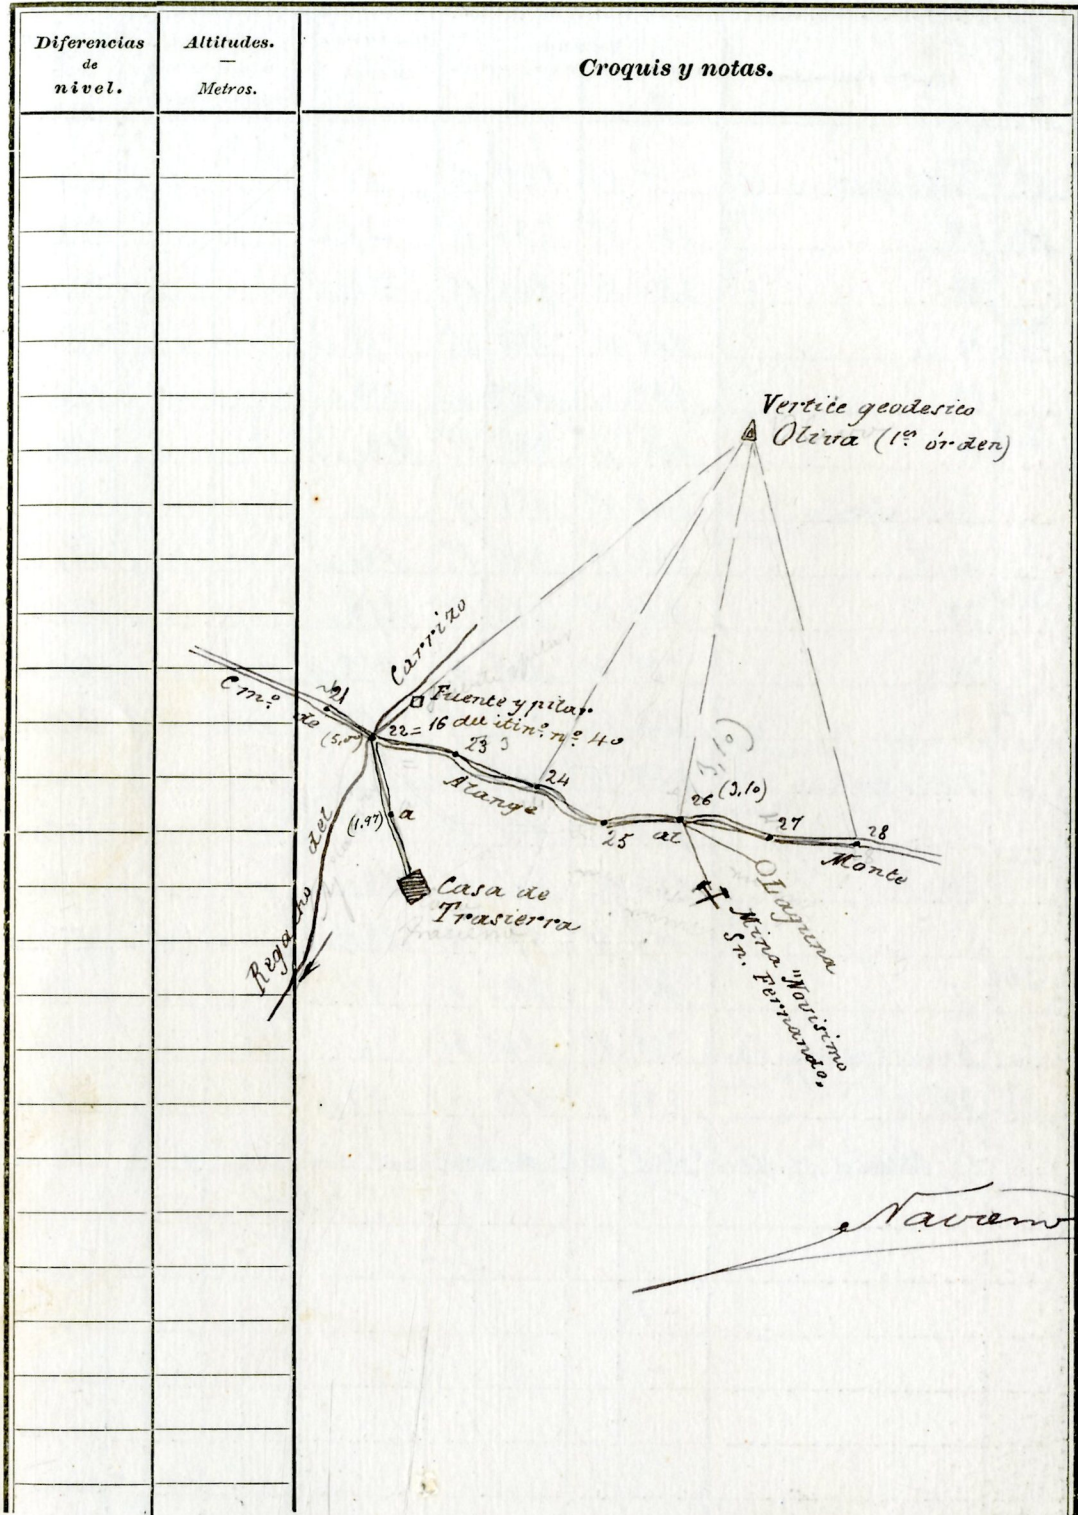 Diferencias
de
nivel.
Altitudes.
—
Metros.
Croquis y notas.
Vertice geodesico
Oliva (1.er órden)
Carrizo
Fuente y pilar
22 = 16 del itin.o n.o 40
Cm.o de
21
(5,00)
23
24
Alange
25
al
26 (3,10)
27
28
Monte
(1.97) a
Casa de
Trasierra
Regacho del
Laguna
Mina "Novisimo
Sn. Fernando,
Navarro